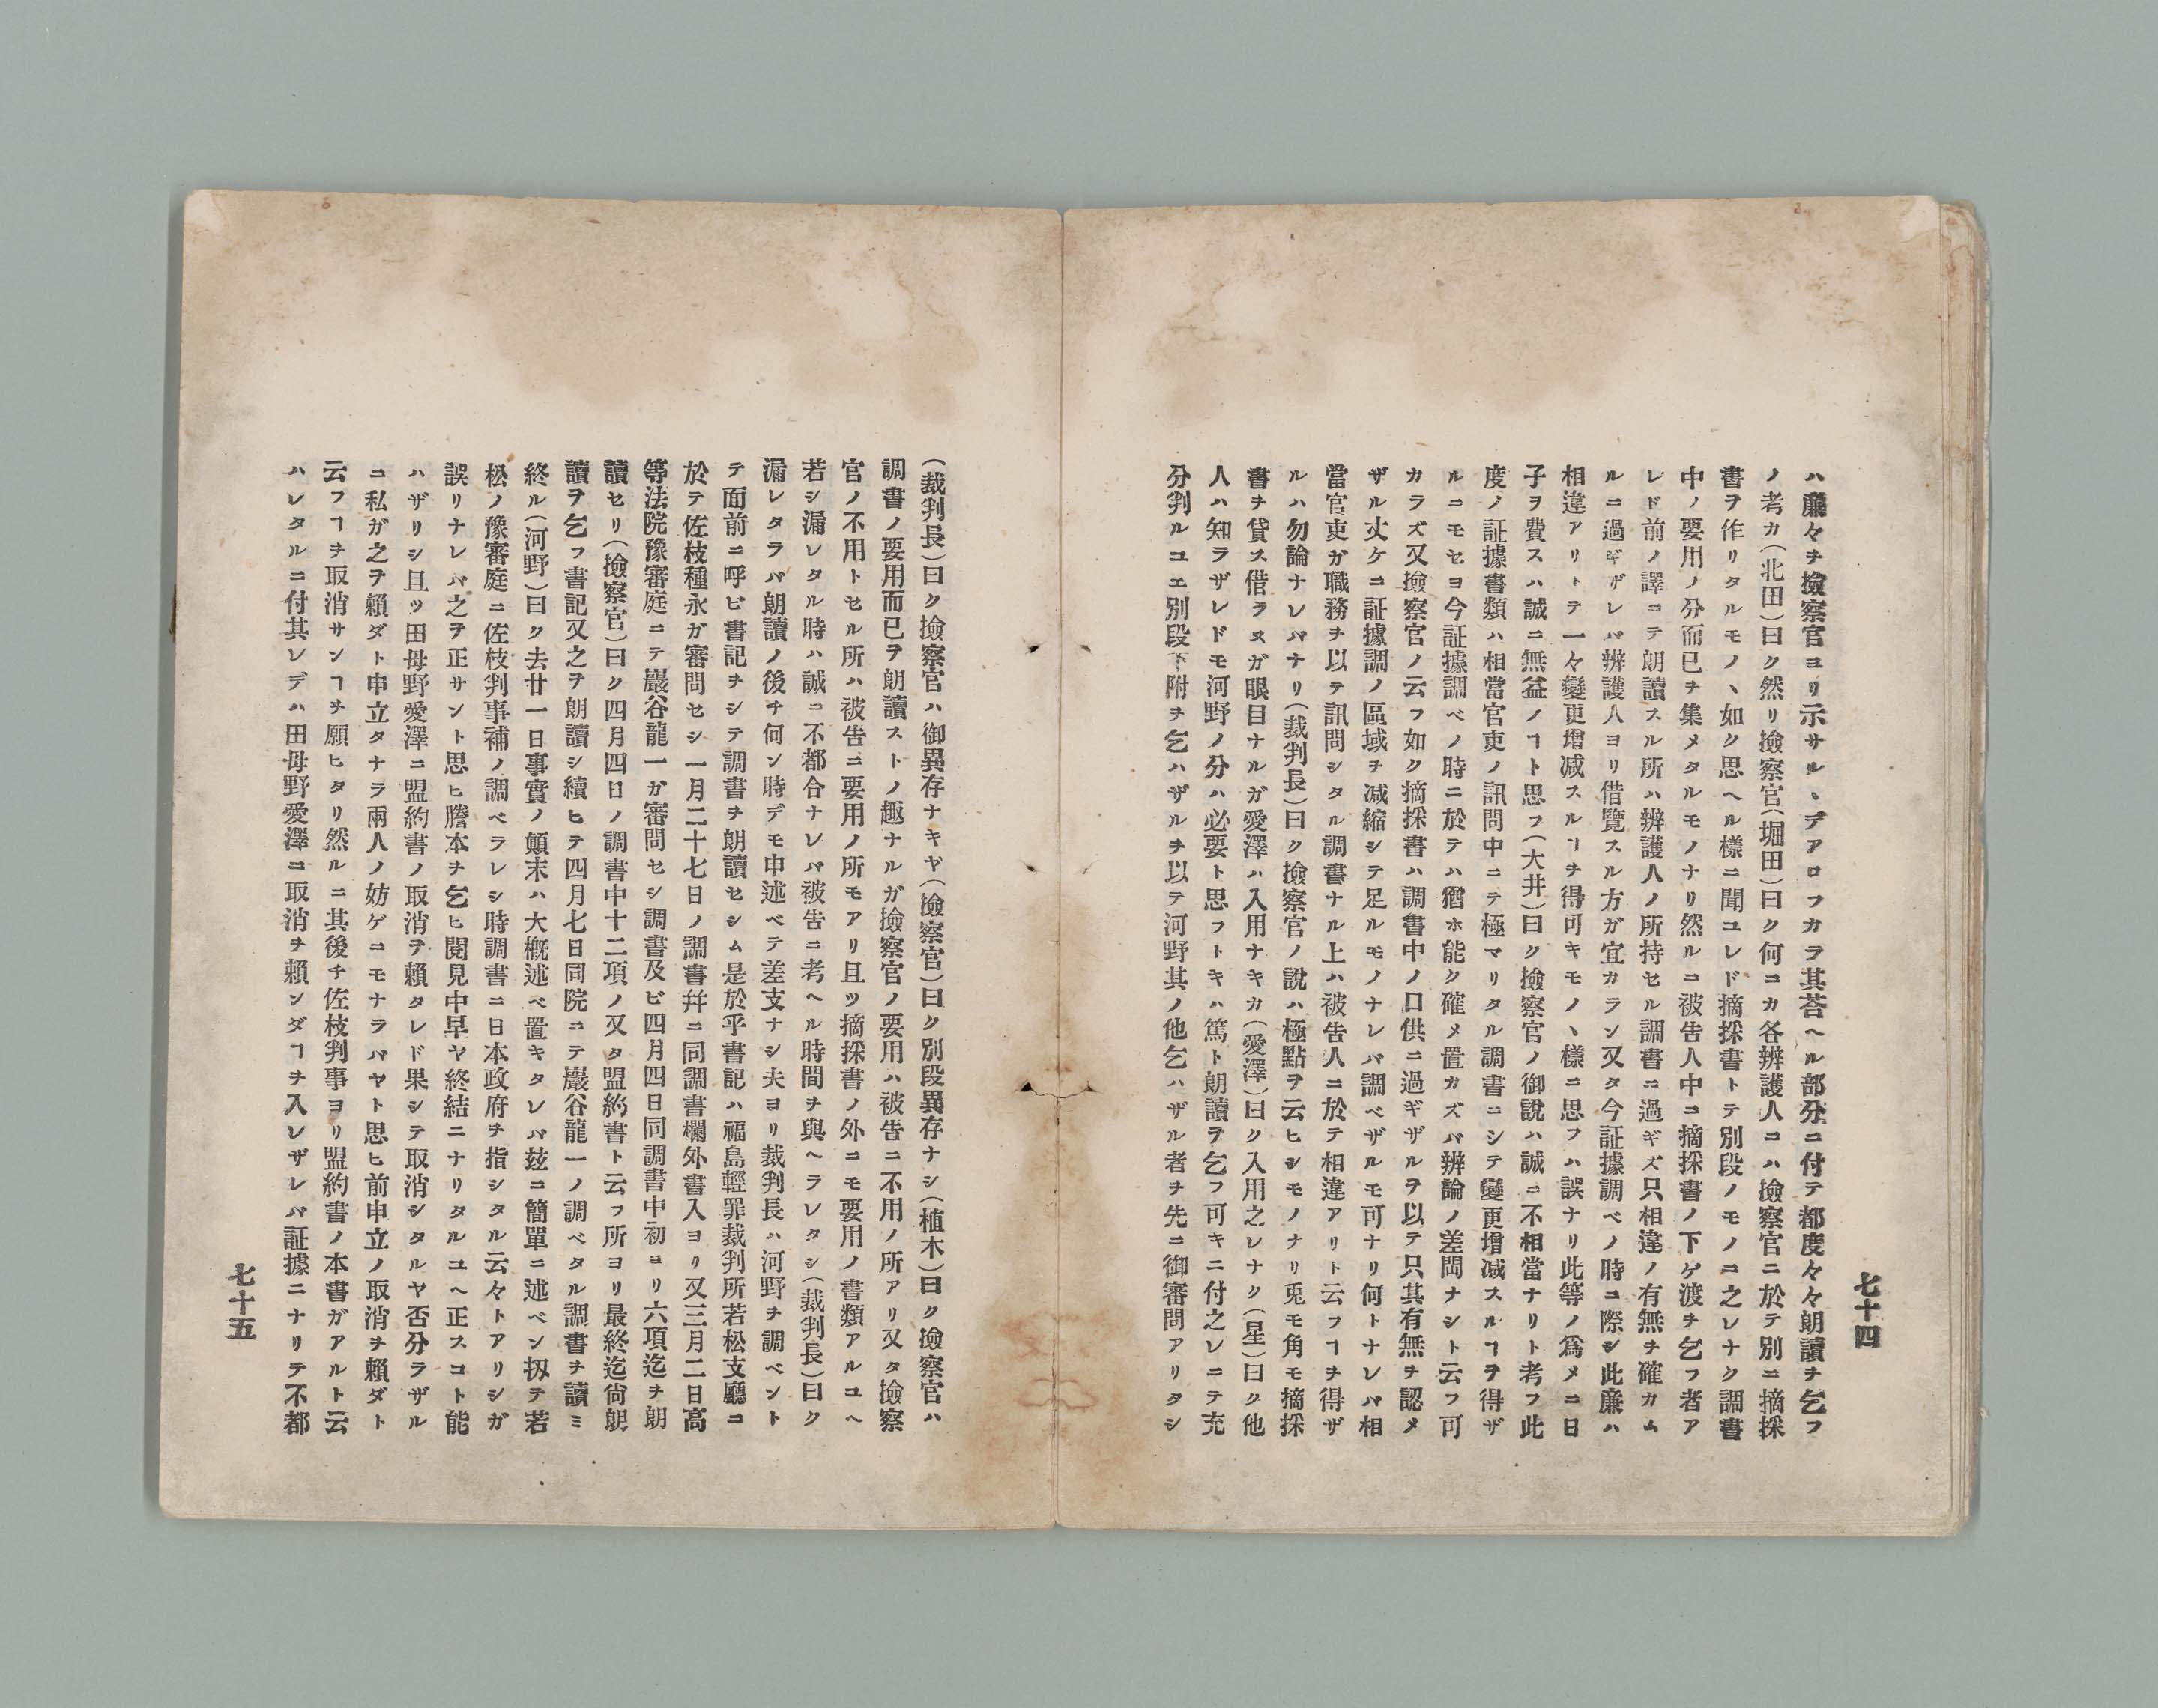 七十四
ハ廉々ヲ撿察官ヨリ示サル、デアロフカラ其荅ヘル部分ニ付テ都度々々朗讀ヲ乞フ
ノ考カ(北田)曰ク然リ撿察官(堀田)曰ク何ニカ各辨護人ニハ撿察官ニ於テ別ニ摘採
書ヲ作リタルモノ、如ク思ヘル樣ニ聞コレド摘採書トテ別段ノモノニ之レナク調書
中ノ要用ノ分而已ヲ集メタルモノナリ然ルニ被告人中ニ摘採書ノ下ゲ渡ヲ乞フ者ア
レド前ノ譯ニテ朗讀スル所ハ辨護人ノ所持セル調書ニ過ギズ只相違ノ有無ヲ確カム
ルニ過ギザレバ辨護人ヨリ借覽スル方ガ宜カラン又タ今証據調ベノ時ニ際シ此廉ハ
相違アリトテ一々變更增减スルヿヲ得可キモノ、樣ニ思フハ誤ナリ此等ノ爲メニ日
子ヲ費スハ誠ニ無益ノヿト思フ(大井)曰ク撿察官ノ御說ハ誠ニ不相當ナリト考フ此
度ノ証據書類ハ相當官吏ノ訊問中ニテ極マリタル調書ニシテ變更增减スルヿヲ得ザ
ルニモセヨ今証據調ベノ時ニ於テハ猶ホ能ク確メ置カズバ辨論ノ差閊ナシト云フ可
カラズ又撿察官ノ云フ如ク摘採書ハ調書中ノ口供ニ過ギザルヲ以テ只其有無ヲ認メ
ザル丈ケニ証據調ノ區域ヲ减縮シテ足ルモノナレバ調ベザルモ可ナリ何トナレバ相
當官吏ガ職務ヲ以テ訊問シタル調書ナル上ハ被告人ニ於テ相違アリト云フヿヲ得ザ
ルハ勿論ナレバナリ(裁判長)曰ク撿察官ノ說ハ極點ヲ云ヒシモノナリ兎モ角モ摘採
書ヲ貸ス借ラヌガ眼目ナルガ愛澤ハ入用ナキカ(愛澤)曰ク入用之レナク(星)曰ク他
人ハ知ラザレドモ河野ノ分ハ必要ト思フトキハ篤ト朗讀ヲ乞フ可キニ付之レニテ充
分判ルユエ別段下附ヲ乞ハザルヲ以テ河野其ノ他乞ハザル者ヲ先ニ御審問アリタシ
(裁判長)曰ク撿察官ハ御異存ナキヤ(撿察官)曰ク別段異存ナシ(植木)曰ク撿察官ハ
調書ノ要用而已ヲ朗讀ストノ趣ナルガ撿察官ノ要用ハ被告ニ不用ノ所アリ又タ撿察
官ノ不用トセル所ハ被告ニ要用ノ所モアリ且ツ摘採書ノ外ニモ要用ノ書類アルユヘ
若シ漏レタル時ハ誠ニ不都合ナレバ被告ニ考ヘル時間ヲ與ヘラレタシ(裁判長)曰ク
漏レタラバ朗讀ノ後チ何ン時デモ申述ベテ差支ナシ夫ヨリ裁判長ハ河野ヲ調ベント
テ面前ニ呼ビ書記ヲシテ調書ヲ朗讀セシム是於乎書記ハ福島輕罪裁判所若松支廳ニ
於テ佐枝種永ガ審問セシ一月二十七日ノ調書幷ニ同調書欄外書入ヨリ又三月二日高
等法院豫審庭ニテ巖谷龍一ガ審問セシ調書及ビ四月四日同調書中初ヨリ六項迄ヲ朗
讀セリ(撿察官)曰ク四月四日ノ調書中十二項ノ又タ盟約書ト云フ所ヨリ最終迄尙朗
讀ヲ乞フ書記又之ヲ朗讀シ續ヒテ四月七日同院ニテ巖谷龍一ノ調ベタル調書ヲ讀ミ
終ル(河野)曰ク去廿一日事實ノ顛末ハ大槪述ベ置キタレバ玆ニ簡單ニ述ベン扨テ若
松ノ豫審庭ニ佐枝判事補ノ調ベラレシ時調書ニ日本政府ヲ指シタル云々トアリシガ
誤リナレバ之ヲ正サント思ヒ謄本ヲ乞ヒ閱見中早ヤ終結ニナリタルユヘ正スコト能
ハザリシ且ツ田母野愛澤ニ盟約書ノ取消ヲ賴タレド果シテ取消シタルヤ否分ラザル
ニ私ガ之ヲ賴ダト申立タナラ兩人ノ妨ゲニモナラバヤト思ヒ前申立ノ取消ヲ賴ダト
云フヿヲ取消サンヿヲ願ヒタリ然ルニ其後チ佐枝判事ヨリ盟約書ノ本書ガアルト云
ハレタルニ付其レデハ田母野愛澤ニ取消ヲ賴ンダヿヲ入レザレバ証據ニナリテ不都
七十五